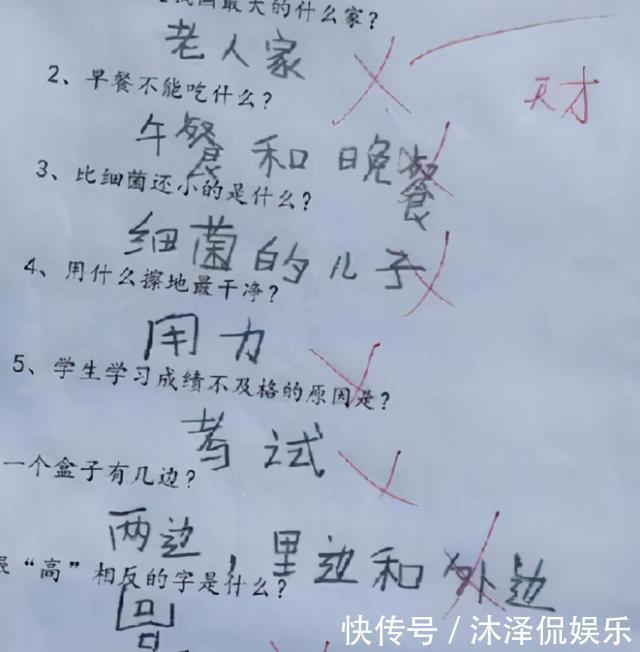 我国最大的什么家?
老人家
天才
2、早餐不能吃什么?
午餐和晚餐
3、比细菌还小的是什么?
细菌的儿子
4、用什么擦地最干净?
用力
5、学生学习成绩不及格的原因是?
考试
一个盒子有几边?
两边，里边和外边
“高”相反的字是什么?
快传号 / 沐泽侃娱乐